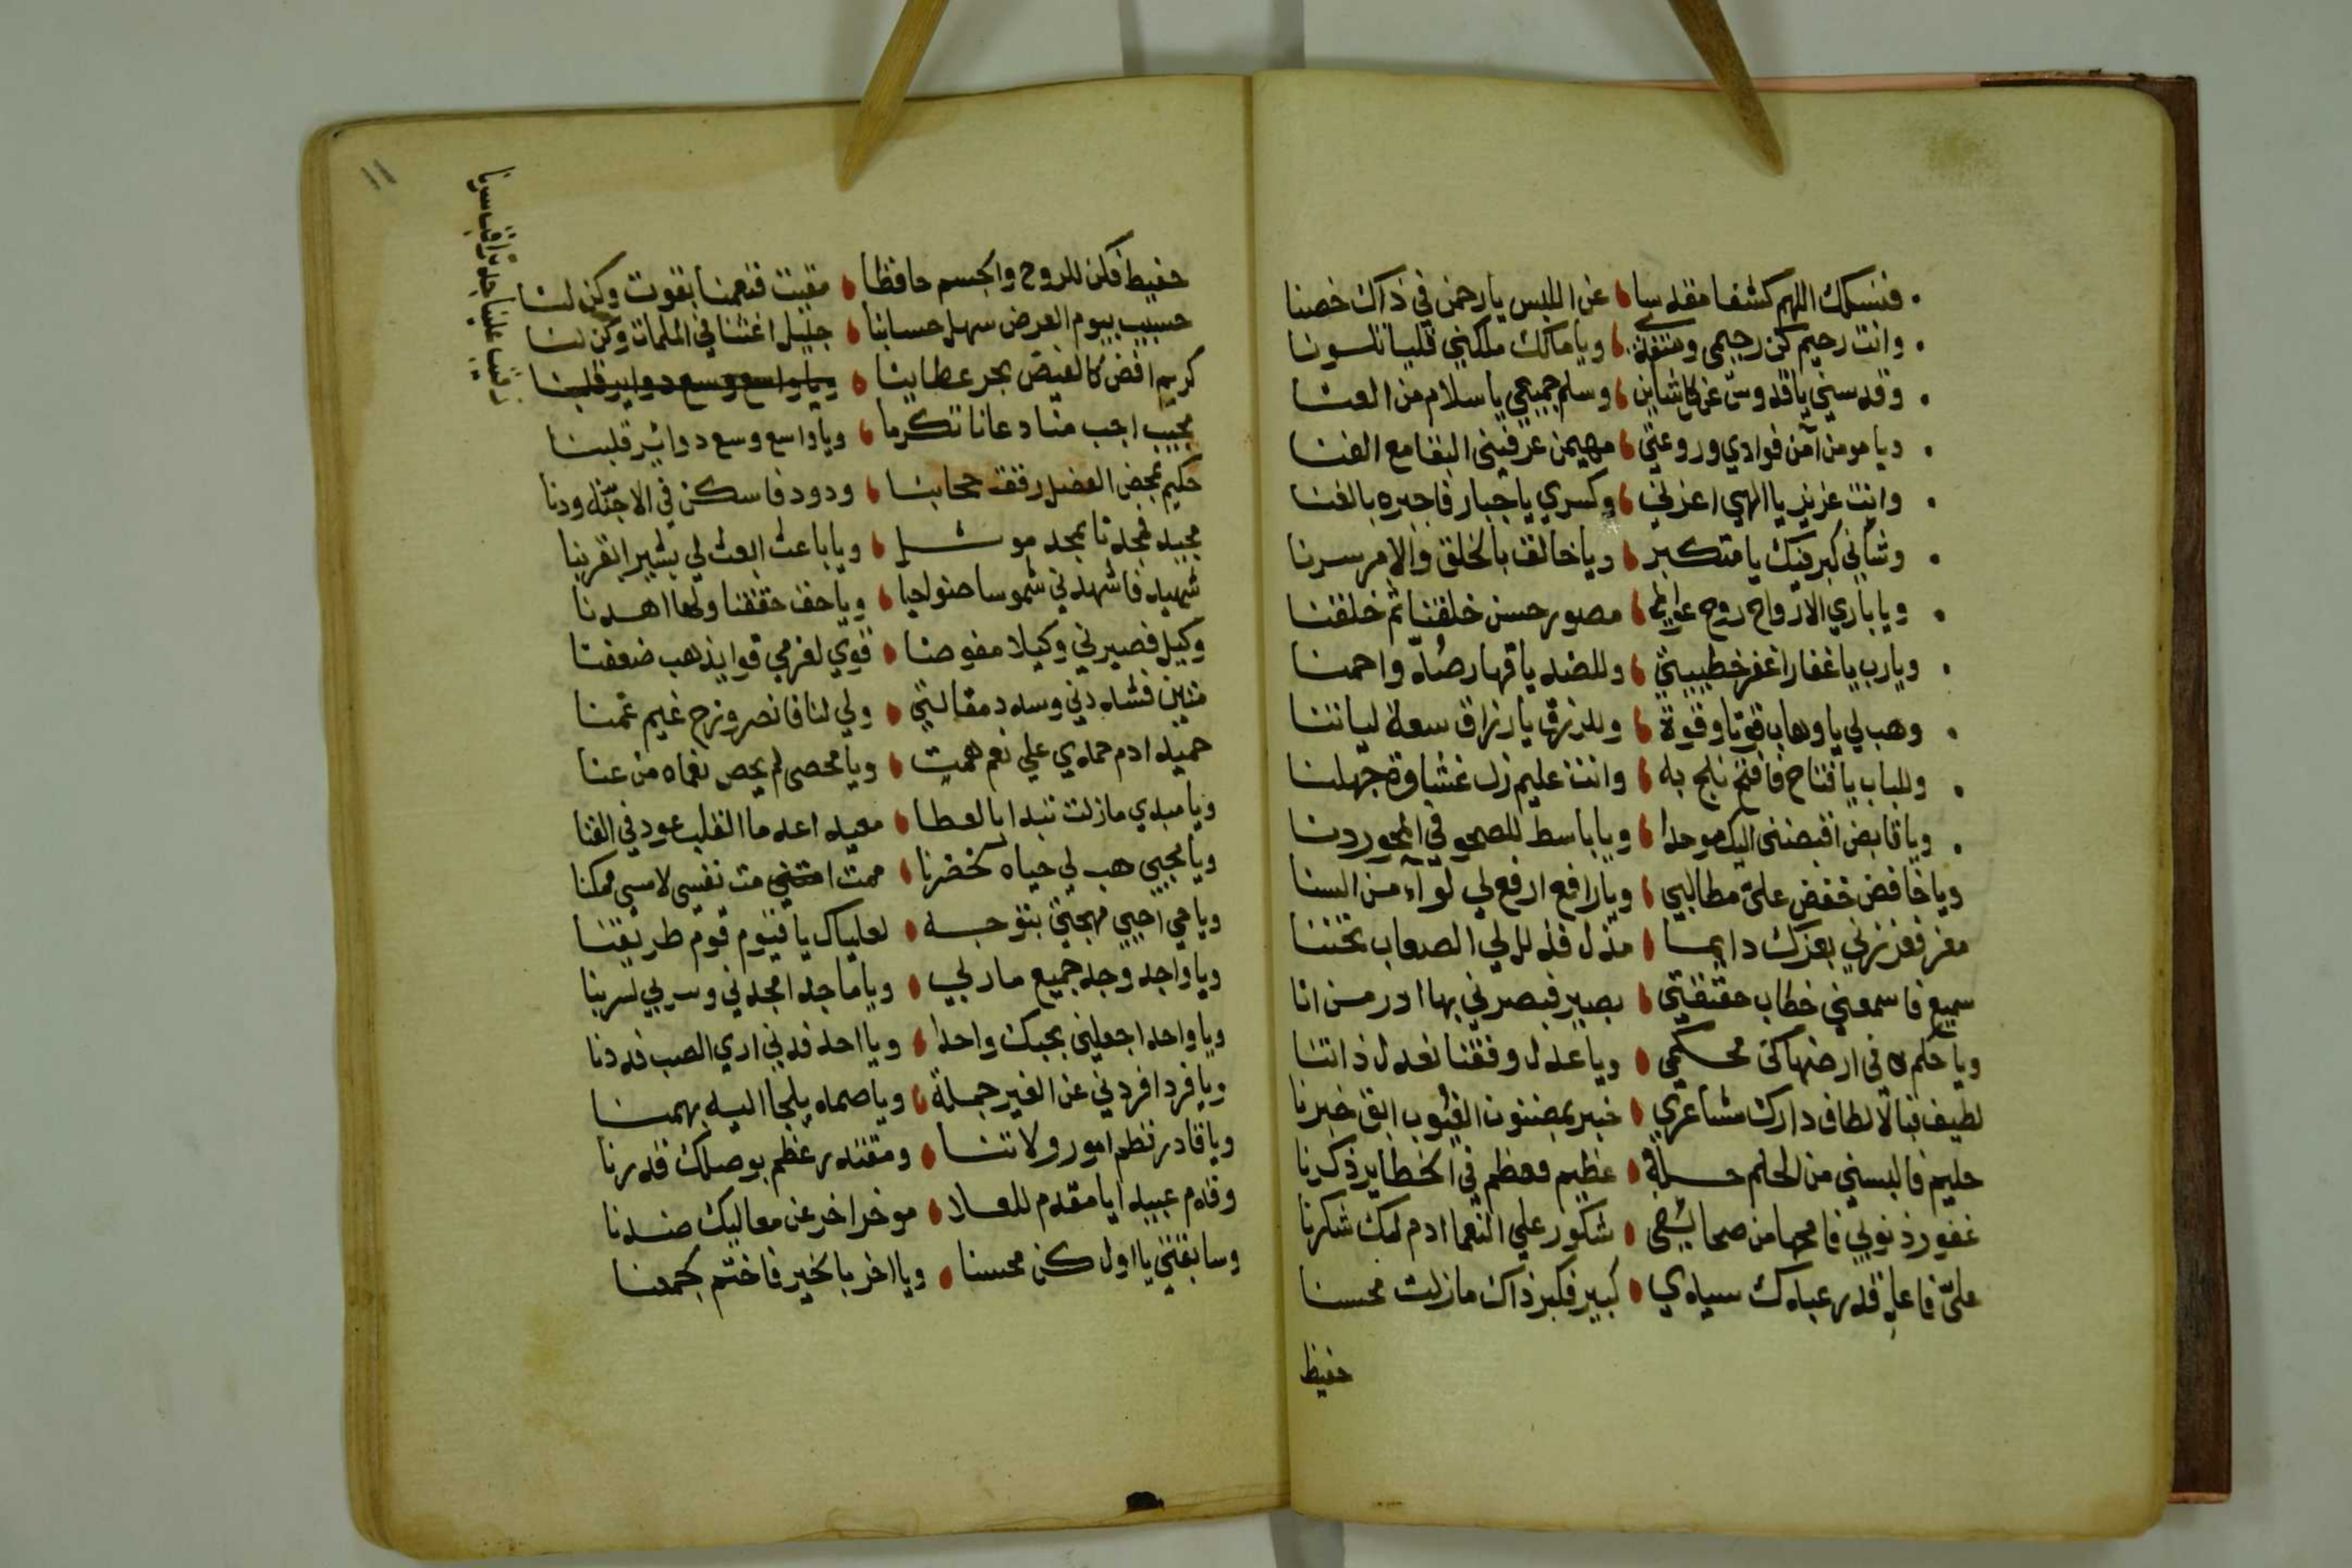 فنسئلك اللهم كشفا مقدسا عن اللبس يا رحمن في ذاك خصنا
وانت رحيم كن رحيمي ويا مالك ملكني قلبا تلسونا
وقدسني يا قدوس عن كل شاين وسلم جميعي يا سلام من العنا
ويا مومن امن فوادي وروعتي مهيمن عرفني البقا مع الفنا
وانت عزيز يا الهي اعزني وكسري يا جبار فاجبره بالغنا
وشاني كبر فيك يا متكبر ويا خالق بالخلق والامر سرنا
ويا باري الارواح روح عوالمي مصور حسن خلقنا ثم خلقنا
ويارب يا غفار اغفر خطيبيتي وللضد يا قهار صُدّ واحمنا
وهب لي يا وهاب قوتا وقوة وللرزق يا رزاق سعة لياتنا
وللباب يا فتاح فافتح نلج به وانت عليم زل غشاوة جهلنا
ويا قابض اقبضني اليك موحدا ويا باسط للصحو في المحو ردنا
ويا خافض خفض علي مطالبي ويا رافع ارفع لي لوآء من السنا
معز فعززني بعزك دايما مذل فذلل لي الصعاب تحننا
سميع فاسمعني خطاب حقيقتي بصير فبصرني بها ادر من انا
ويا حكم في ارضها كن محكمي ويا عدل وفقنا لعدل ذاتنا
لطيف فبالالطاف دارك مشاعري خبير بمضنون الغيوب ابق خبرنا
حليم فالبسني من الحلم حلة عظيم فعظم في الخطاير ذكرنا
غفور ذنوبي فامحها من صحايفي شكور علي النعما ادم لك شكرنا
عليّ فاعل قدر عبدك سيدي كبير فكبر ذاك مازلت محسنا
حفيظ
١١
حفيظ فكن للروح والجسم حافظا مقيت فنعمنا بقوت وكن لنا
حسيب بيوم العرض سهل حسابنا جليل اغثنا في الملمات وكن لنا
كريم افض كالفيض بحر عطاينا ويا واسع وسع دواير قلبنا
رقيب علينا جد تراقب سرنا
مجيب اجب منا دعانا تكرما ويا واسع وسع دواير قلبنا
حكيم بمحض الفضل رفقت حجابنا ودود فاسكن في الاجنّة ودنا
مجيد فمجدنا بمجد موثل ويا باعث ابعث لي بشيرا بقربنا
شهيد فاشهدني شموسا ضواحيا ويا حق حققنا ولها اهدنا
وكيل فصيرني وكيلا مفوضا قوي لغرمي قوا يذهب ضعفنا
متين فشددني وسدد مقالتي ولي لنا فانصر وزح غيم غمنا
حميد ادم حمدي علي نعم همت ويا محصي لم يحص نعماه من عنا
ويا مبدي مازلت تبدا بالعطا معيد اعد ما القلب عود في الفنا
ويا محيي هب لي حياه كخضرنا مميت مت نفسي لامسي ممكنا
ويا حي احيي مهجتي بتوجه لعلياك يا قيوم قوم طريقنا
ويا واجد وجد جميع ماربي ويا ماجد امجدني وسر بي لسربنا
ويا واحد اجعلني بحبك واحدا ويا احد قدني اري الصب قد دنا
ويا فرد افردني عن الغير جملة ويا صمد يلجا اليه بهمنا
ويا قادر نظم امور ولاتنا ومقتدر عظم بوصلك قدرنا
وقدم عبيدا يا مقدم للعلا موخر اخر عن معاليك ضدنا
وسابقتي يا اول كن محسنا ويا اخر بالخير فاختم لجمعنا